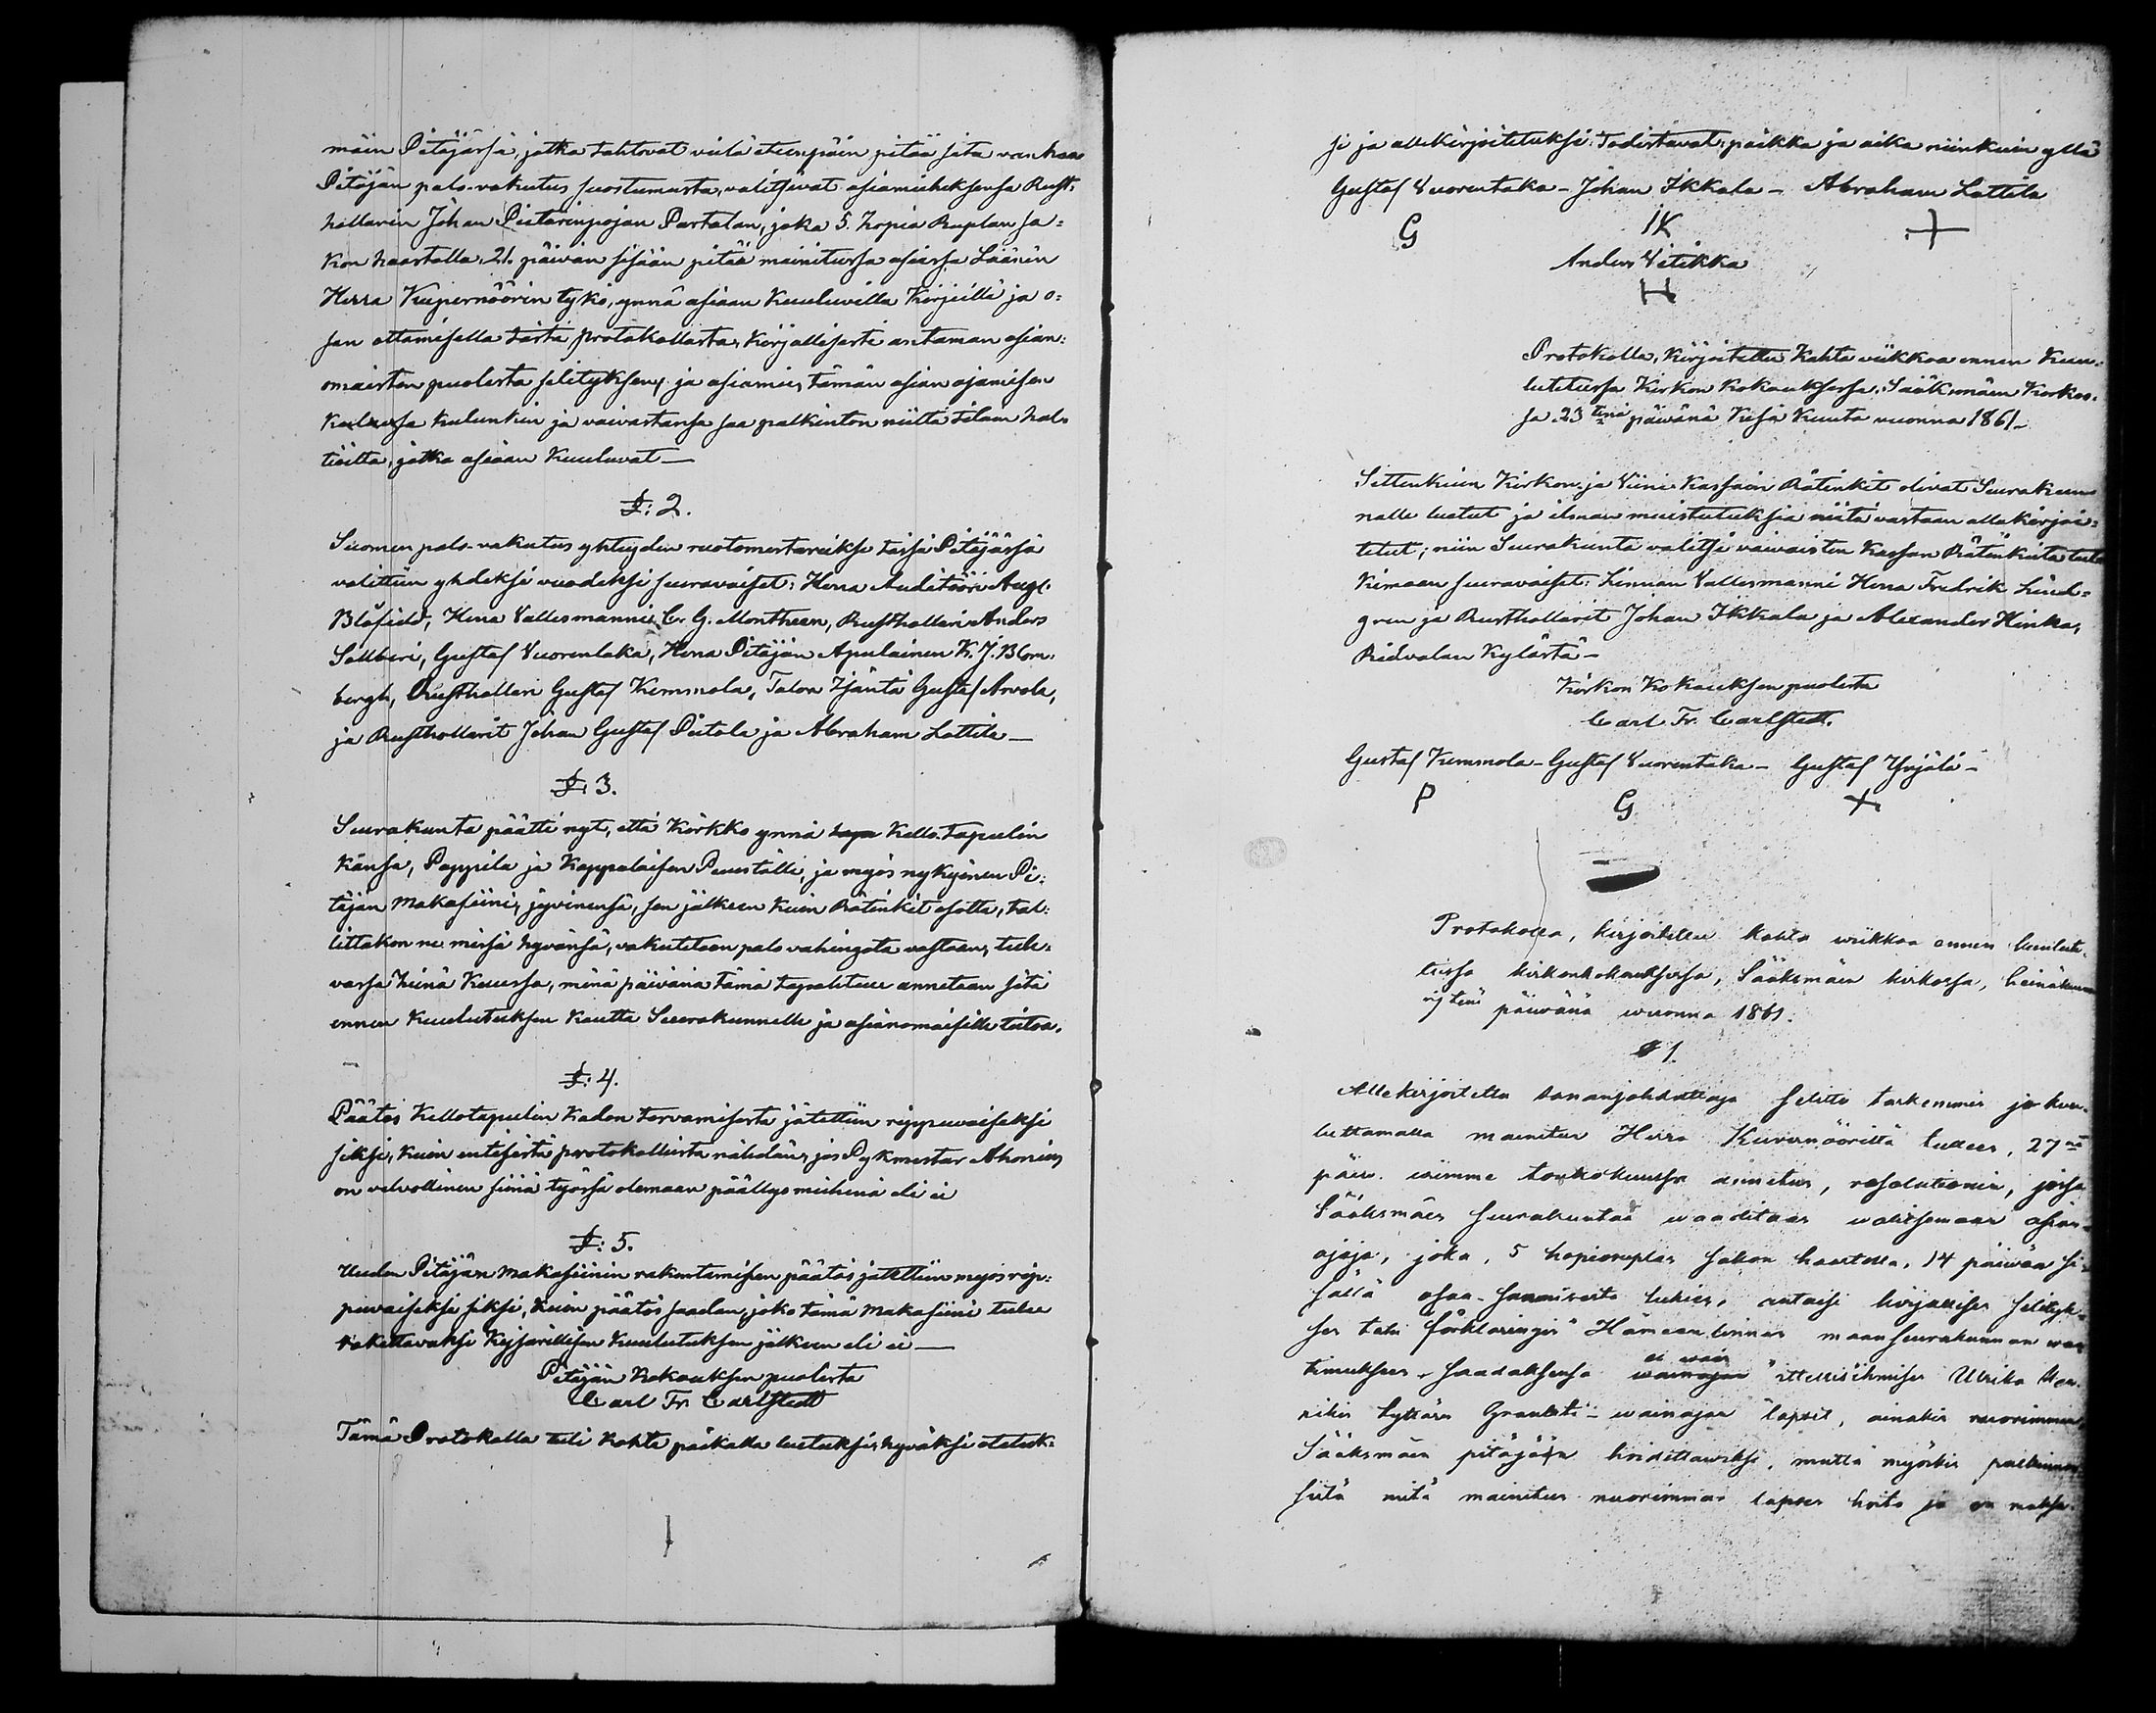 mäin Pitäjässä, jotka tahtovat vielä eteenpäin pitää sitä vanhaa
Pitäjän palo-vakutus suostumusta, valitsivat asiamieheksensä Rust-
hollarin Johan Pietarinpojan Partalan, joka 5. hopia Ruplan sa-
kon haastolla, 21. päivän sisään pitää mainitussa asiassa Läänin
Herra Kupernöörin tykö, ynnä asiaan kuuluvilla Kirjoilla ja o-
san ottamisella tästä protokollasta, kirjallisesti antaman asian-
omaisten puolesta selityksen, ja asiamies, tämän asian ajamisen
kulusta kulunkin ja vaivastansa saa palkinton niiltä tilan hal-
tioilta, jotka asiaan kuuluvat —
§: 2.
Suomen palo-vakutus yhteyden ruotomestareiksi tässä Pitäjässä
valittiin yhdeksi vuodeksi seuravaiset: Herra Auditööri Aug.
Blåfield, Herra Vallesmanni C. G. Montheen, Rusthollari Anders
Sallberi, Gustaf Vuorentaka, Herra Pitäjän Apulainen K. J. Blom-
bergh, Rusthollari Gustaf Kemmola, Talon Isäntä Gustaf Arvola,
ja Rusthollarit Johan Gustaf Pietola ja Abraham Lottila —
§: 3.
Seurakunta päätti nyt, että Kirkko ynnä Kello-tapulin
kansa, Pappila ja Kappalaisen Puuställi, ja myös nykyinen Pi-
täjän Makasiini, jyvinensä, sen jälkeen kuin Rätinkit osotta, tal-
littakon ne missä hyvänsä, vakutetaan palo vahingota vastaan, tule-
vassa heinä Kuussa, minä päivänä tämä tapahtuu annetaan sitä
ennen kuulutuksen kautta Seurakunnalle ja asianomaisille tieto.
§: 4.
Päätös Kellotapulin Kadon tervamisesta jätettiin riippuvaiseksi
siksi, kuin entisistä protokollista nähdän, jos Pykmestar Ahonius
on velvollinen siinä työssä olemaan päällysmiehenä eli ei
§: 5.
Uuden Pitäjän makasiinin rakentamisen päätös jätettiin myös riip-
puvaiseksi siksi, kuin päätös saadan, joko tämä makasiini tulee
rakettavaksi Keisarillisen kuulutuksen jälkeen eli ei —
Pitäjän Kokouksen puolesta
Carl Fr. Carlstedt
Tämä Protokolla tuli kohta paikalla luetuksi, hyväksi otetuk-
si ja allekirjoitetuksi. Todistavat, paikka ja aika niinkuin yllä
Gustaf Vuorentaka – Johan Ikkala – Abraham Lottila
G IK +
Anders Vitikka
H
Protokolla, kirjoitettu Kahta viikkoa ennen kuu-
lutetussa Kirkon kokouksessa, Sääksmäen Kirkos-
sa 23 tenä päivänä Kesä Kuuta vuonna 1861 –
Sittenkuin Kirkon- ja Viini-kassain Rätinkit olivat Seurakun-
nalle luetut ja ilman muistutuksia niitä vastaan allekirjoi-
tetut; niin Seurakunta valitsi vaivaisten kassan Rätinkiita tut-
kimaan seuravaiset: Linnan Vallesmanni Herra Fredrik Lind-
gren ja Rusthollarit Johan Ikkala ja Alexander Hinka,
Ridvalan Kylästä –
Kirkon Kokouksen puolesta
Carl Fr. Carlstedt.
Gustaf Kemmola – Gustaf Vuorentaka – Gustaf Yrjölä –
P G +
Protokolla, kirjoitettu kahta wiikkoa ennen kuulute-
tussa kirkonkokouksessa, Sääksmäen kirkossa, heinäkuun
päiwänä wuonna 1861.
§ 1.
Allekirjoitettu sananjohdattaja selitti tarkemmin jo kuu-
luttamalla mainitun Herra Kuvernööriltä tulleen, 27nä
päiw. wiimme toukokuussa annetun, resolutionin, jossa
Sääksmäen seurakuntaa waaditaan walitsemaan asian-
ajaja, joka, 5 hopiaruplan sakon haastolla, 14 päiwän si-
sällä osan-saamisesta lukien, antaisi kirjallisen selityk-
sen Hämeenlinnan maanseurakunnan waa-
timukseen, saadaksensa ei wain "itsellisihmisen Ulrika Hen-
rikin tyttären Granlöfi-wainajan" lapset, ainakin nuorimman
Sääksmäen pitäjään hoidettawiksi, mutta myöskin palkinnon
siitä mitä mainitun nuorimman lapsen hoito jo on maksa-